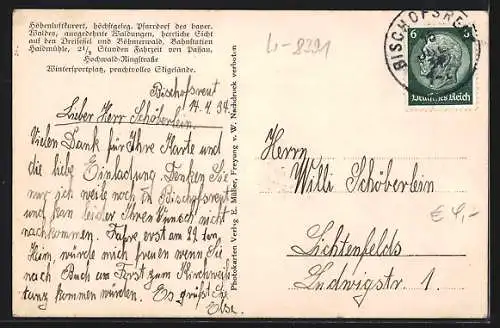 Höhenluftkurort, höchstgeleg. Pfarrdorf des bayer.
Waldes, ausgedehnte Waldungen, herrliche Sicht
auf den Dreisessel und Böhmerwald. Bahnstation
Haidmühle, 2½ Stunden Fahrzeit von Passau.
Hochwald-Ringstraße
Wintersportplatz, prachtvolles Skigelände.
W-8391
BISCHOFSREUT
6
Deutsches Reich
Bischofsreut
14.4.37
Lieber Herr Schöberlein
Vielen Dank für Ihre Karte und
die liebe Einladung. Denken Sie
nur ich weile noch in Bischofsreut
und kan leider Ihren Wunsch nicht
nachkommen. Fahre erst am 22. von
Heim, würde mich freuen wenn Sie
nach Buch am Forst zum Kirchweih-
tanz kommen würden. Es grüßt Sie
Else.
Photokarten Verlag E. Müller, Freyung v. W. Nachdruck verboten
Herrn
Willi Schöberlein
€ 4,-
Lichtenfelds
Ludwigstr 1.